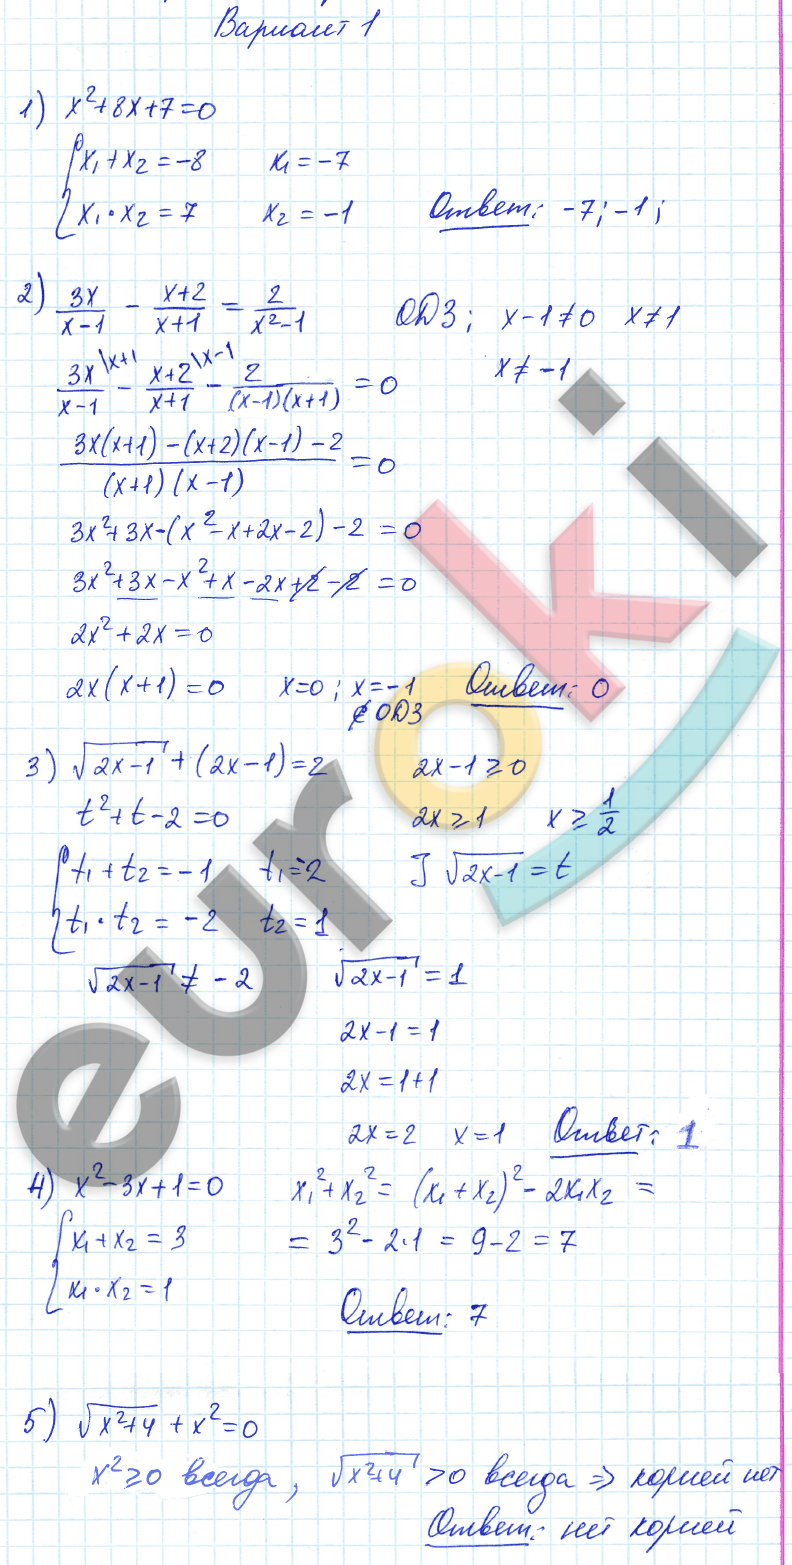 Вариант 1
1) x²+8x+7=0
{x₁+x₂=-8   x₁=-7
{x₁·x₂=7   x₂=-1   Ответ: -7; -1;
2) 3x/(x-1) - (x+2)/(x+1) = 2/(x²-1)   ОДЗ; x-1≠0   x≠1
x≠-1
3x\x+1/(x-1) - x+2\x-1/(x+1) - 2/((x-1)(x+1)) = 0
(3x(x+1)-(x+2)(x-1)-2)/((x+1)(x-1)) = 0
3x²+3x-(x²-x+2x-2)-2=0
3x²+3x-x²+x-2x+2-2=0
2x²+2x=0
2x(x+1)=0   x=0; x=-1   Ответ: 0
∉ ОДЗ
3) √(2x-1)+(2x-1)=2   2x-1≥0
t²+t-2=0   2x≥1   x≥1/2
{t₁+t₂=-1   t₁=-2   ] √(2x-1)=t
{t₁·t₂=-2   t₂=1
√(2x-1)≠-2   √(2x-1)=1
2x-1=1
2x=1+1
2x=2   x=1   Ответ: 1
4) x²-3x+1=0   x₁²+x₂²=(x₁+x₂)²-2x₁x₂=
{x₁+x₂=3   =3²-2·1=9-2=7
{x₁·x₂=1
Ответ: 7
5) √(x²+4)+x²=0
x²≥0 всегда, √(x²+4)>0 всегда ⇒ корней нет
Ответ: нет корней
euroki